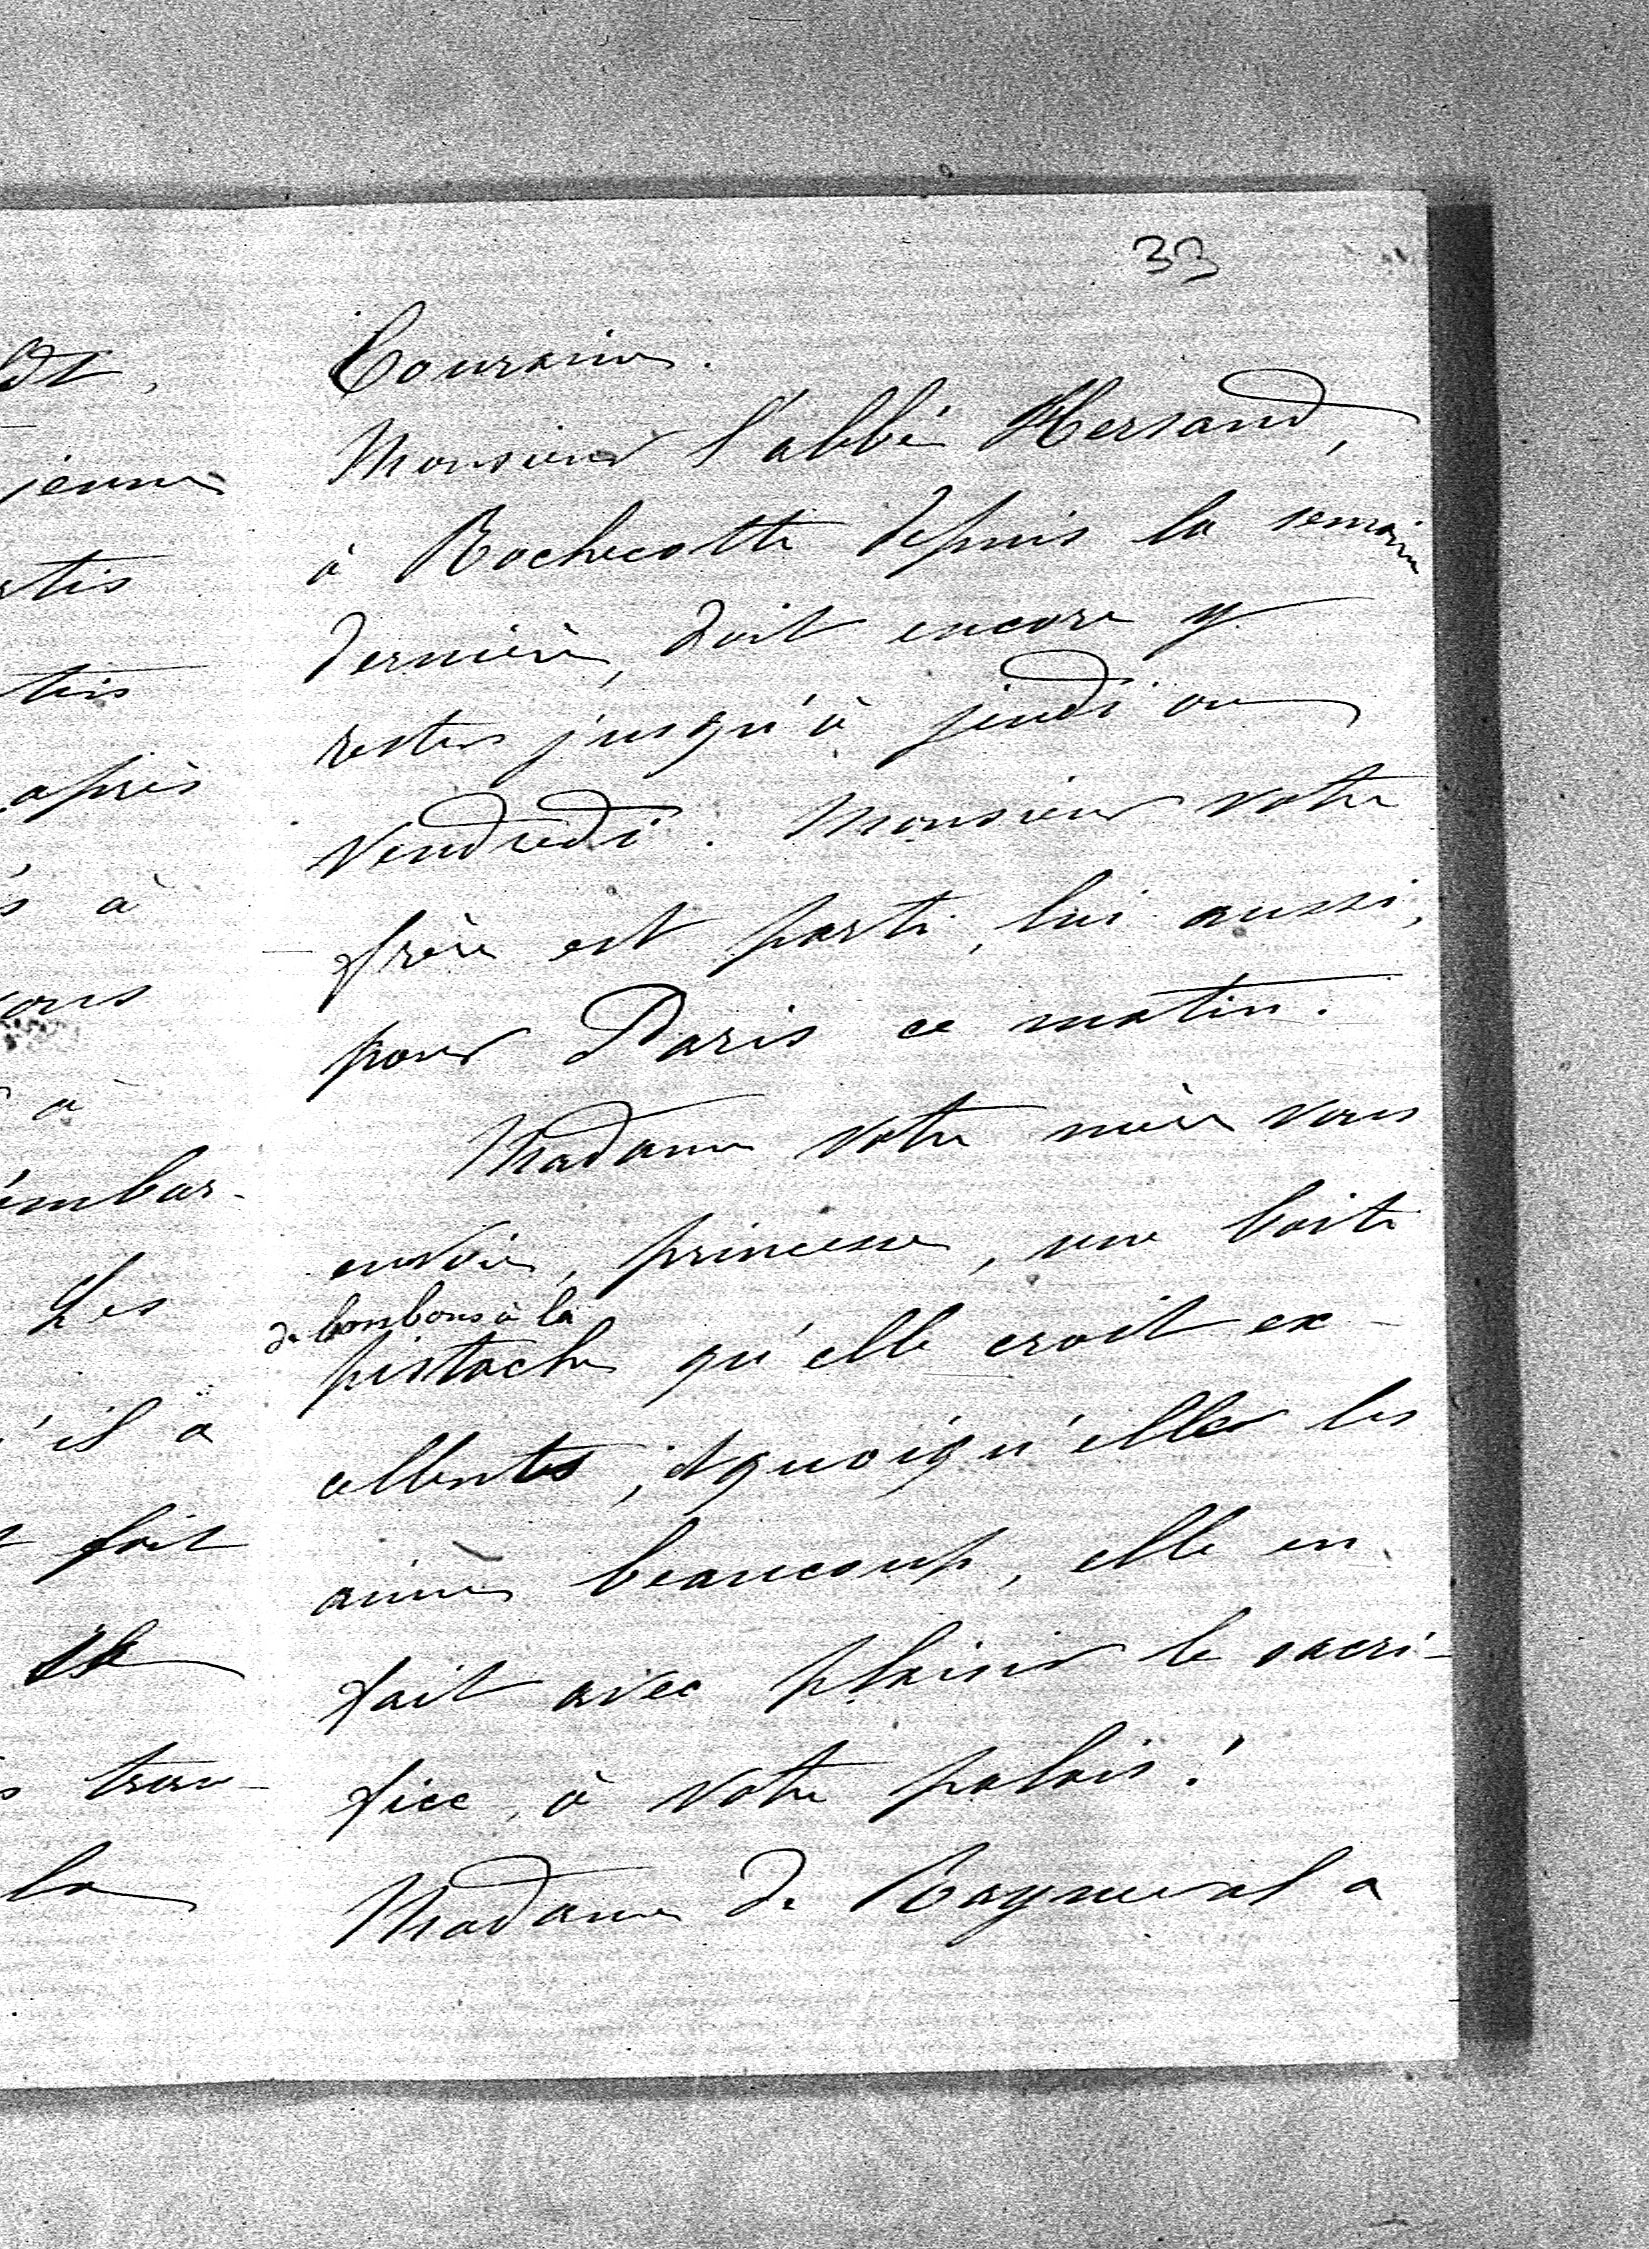 33
Touraine.
Monsieur l'abbé Hersand,
à Rochecotte depuis la semaine
dernière, doit encore y
rester jusqu'à jeudi ou
vendredi. Monsieur votre
frère est parti, lui aussi,
pour Paris ce matin.
Madame votre mère vous
envoie, princesse, une boite
de bonbons à la
pistache qu'elle croit ex-
cellents; et quoiqu'elle les
aime beaucoup, elle en
fait avec plaisir le sacri-
fice, à votre palais!
Madame de Rayneval a
jeune
après
à
à
Les
'il a
fait
la